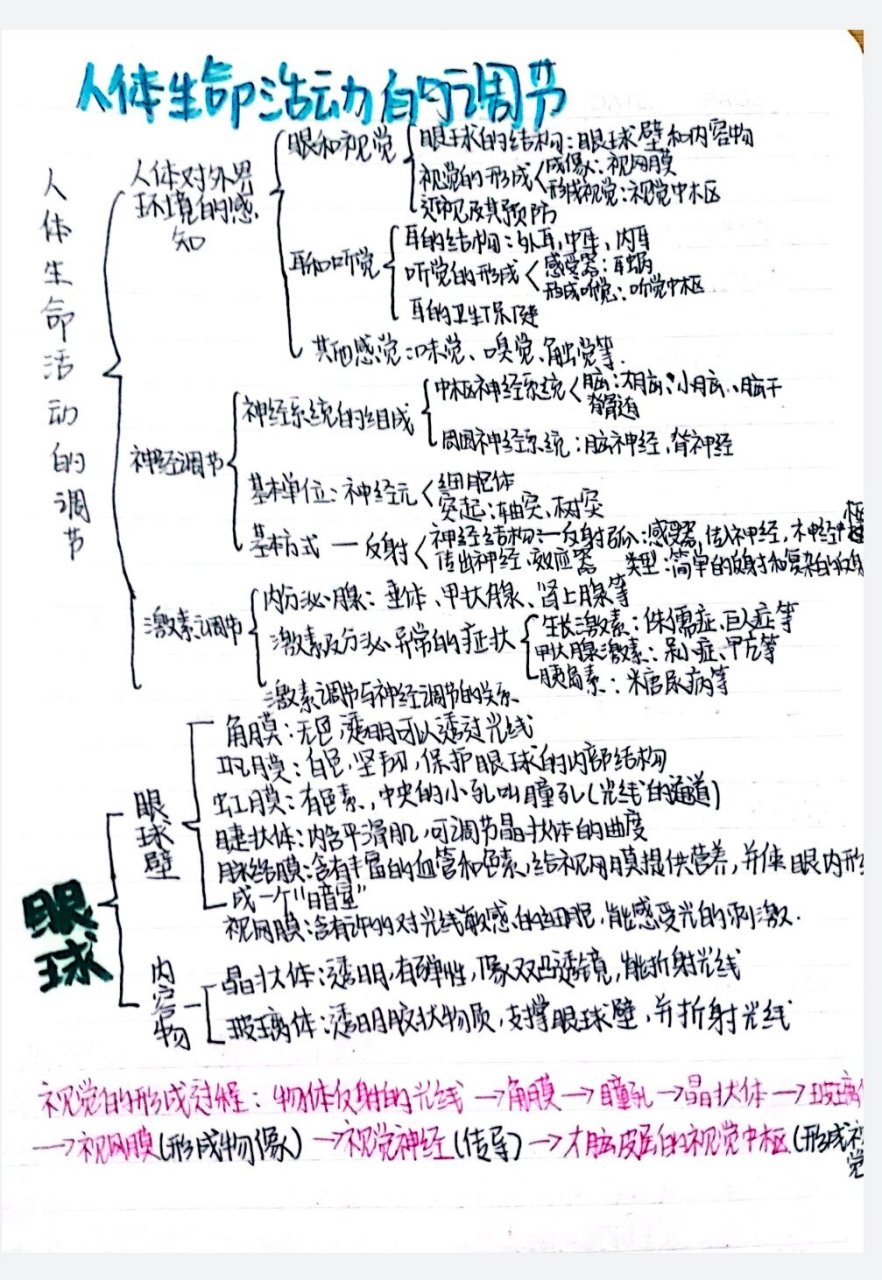 人体生命活动的调节
人体生命活动的调节
人体对外界
环境的感
知
眼和视觉
眼球的结构:眼球壁和内容物
视觉的形成
成像:视网膜
形成视觉:视觉中枢
近视及其预防
耳和听觉
耳的结构:外耳,中耳,内耳
听觉的形成
感受器:耳蜗
形成听觉:听觉中枢
耳的卫生保健
其他感觉:味觉、嗅觉、触觉等.
神经调节
神经系统的组成
中枢神经系统
脑:大脑、小脑、脑干
脊髓
周围神经系统:脑神经,脊神经
基本单位:神经元
细胞体
突起:轴突、树突
基本方式—反射
神经结构:—反射弧:感受器,传入神经,神经中枢
传出神经、效应器 类型:简单的反射和复杂的反射
激素调节
内分泌腺:垂体、甲状腺、肾上腺等
激素及分泌异常的症状
生长激素:侏儒症、巨人症等
甲状腺激素:呆小症、甲亢等
胰岛素:糖尿病等
激素调节与神经调节的关系
眼球
眼球壁
角膜:无色,透明可以透过光线
巩膜:白色,坚韧,保护眼球的内部结构
虹膜:有色素,中央的小孔叫瞳孔(光线的通道)
睫状体:内含平滑肌,可调节晶状体的曲度
脉络膜:含有丰富的血管和色素,给视网膜提供营养,并使眼内形
成一个“暗室”
视网膜:含有许多对光线敏感的细胞,能感受光的刺激.
内容物
晶状体:透明,有弹性,像双凸透镜,能折射光线
玻璃体:透明胶状物质,支撑眼球壁,并折射光线
视觉的形成过程:物体反射的光线→角膜→瞳孔→晶状体→玻璃
→视网膜(形成物像)→视觉神经(传导)→大脑皮层的视觉中枢(形成视
觉